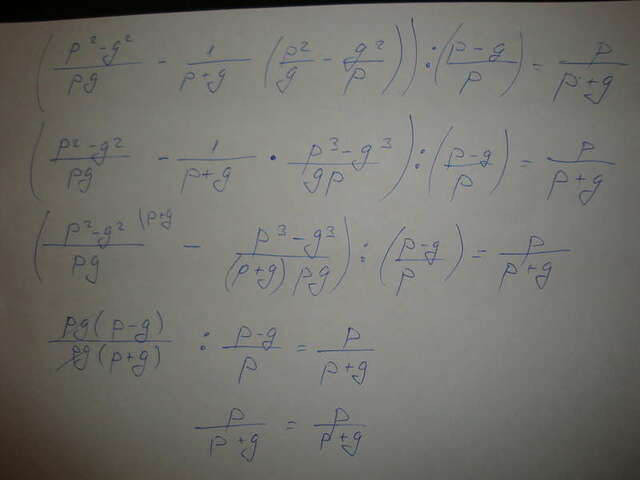 ( (p²-g²)/(pg) - 1/(p+g) (p²/g - g²/p) ) : ( (p-g)/p ) = p/(p+g)
( (p²-g²)/(pg) - 1/(p+g) · (p³-g³)/(gp) ) : ( (p-g)/p ) = p/(p+g)
( (p²-g²)/(pg) \p+g - (p³-g³)/((p+g)pg) ) : ( (p-g)/p ) = p/(p+g)
pg(p-g)/pg(p+g) : (p-g)/p = p/(p+g)
p/(p+g) = p/(p+g)